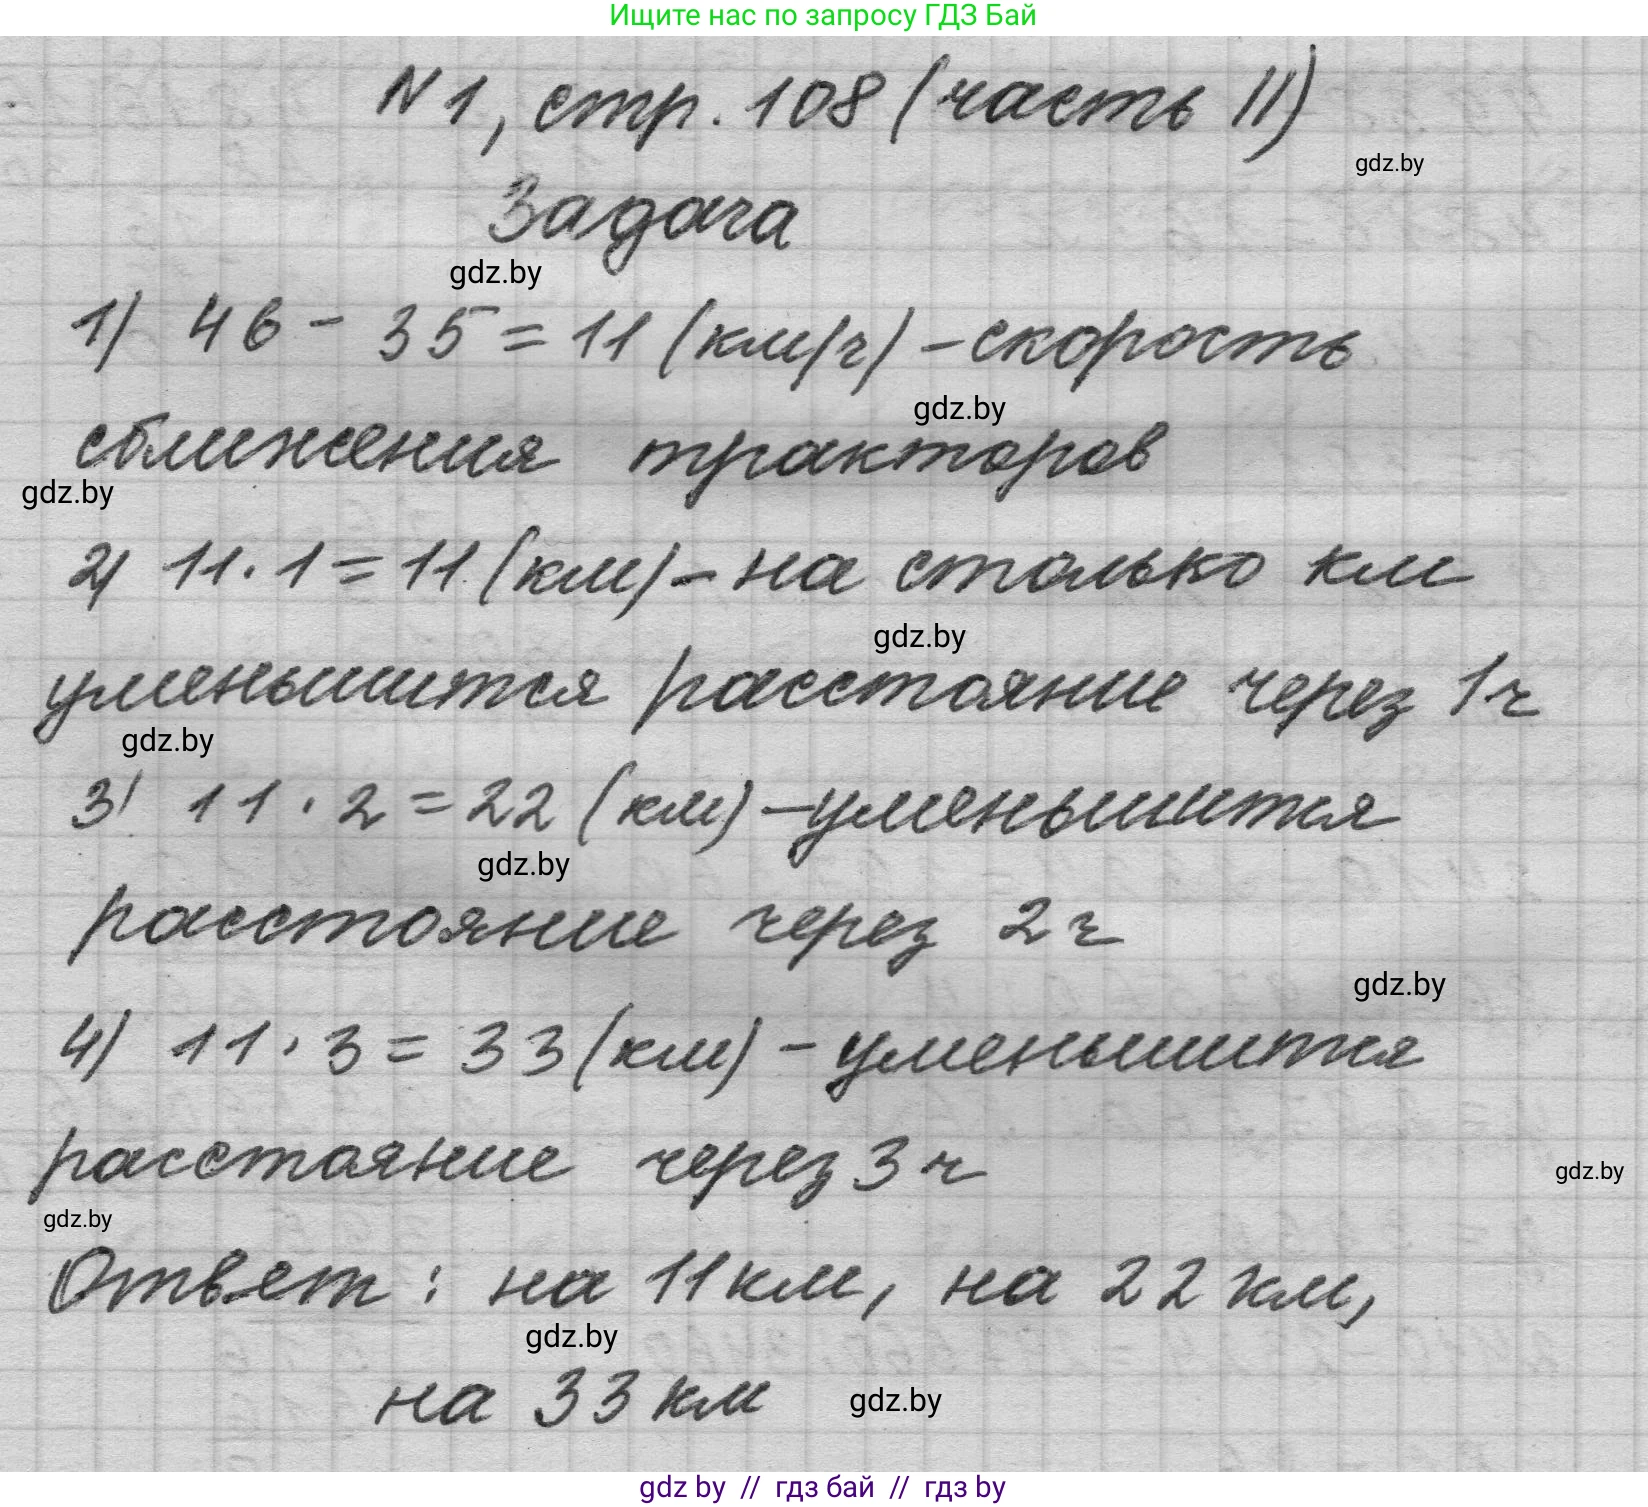 Ищите нас по запросу ГДЗ Бай
N 1, стр. 108 (часть II)
gdz.by
Задача
gdz.by
1) 46 - 35 = 11 (км/ч) - скорость
gdz.by
сближения тракторов
gdz.by
2) 11 · 1 = 11 (км) - на столько км
gdz.by
уменьшится расстояние через 1 ч
gdz.by
3) 11 · 2 = 22 (км) - уменьшится
gdz.by
расстояние через 2 ч
gdz.by
4) 11 · 3 = 33 (км) - уменьшится
расстояние через 3 ч
gdz.by
gdz.by
Ответ: на 11 км, на 22 км,
gdz.by
на 33 км
gdz.by
gdz by // гдз бай // гдз by